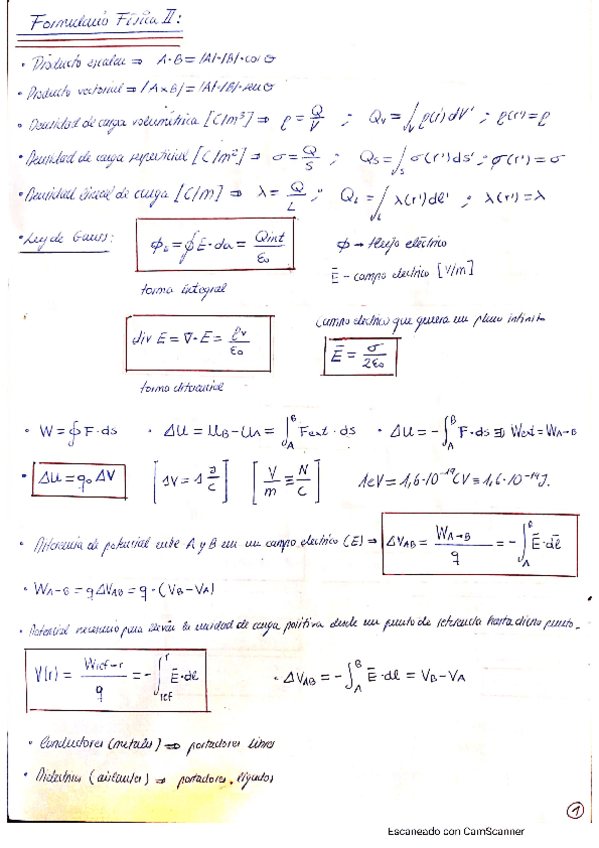 Formulario Física II:
• Producto escalar ⇒ A·B = |A|·|B|·cos θ
• Producto vectorial ⇒ |A×B| = |A|·|B|·sen θ
• Densidad de carga volumétrica [C/m³] ⇒ ρ = Q/V ; Qv = ∫v ρ(r') dV' ; ρ(r') = ρ
• Densidad de carga superficial [C/m²] ⇒ σ = Q/S ; Qs = ∫s σ(r') ds' ; σ(r') = σ
• Densidad lineal de carga [C/m] ⇒ λ = Q/L ; QL = ∫L λ(r') dl' ; λ(r') = λ
• Ley de Gauss: ϕE = ∮ Ē·da = Qint/ε₀ ϕ → flujo eléctrico
Ē - campo electrico [V/m]
forma integral
div E = ∇·E = ρv/ε₀ Campo electrico que genera un plano infinito
Ē = σ/2ε₀
forma diferencial
• W = ∮ F·ds • ΔU = UB - UA = ∫A^B Fext · ds • ΔU = -∫A^B F·ds ⇒ Wext = WA→B
• ΔU = q₀ ΔV [1V = 1 J/C] [V/m ≡ N/C] 1eV = 1,6·10⁻¹⁹ CV ≡ 1,6·10⁻¹⁹ J.
• Diferencia de potencial entre A y B en un campo electrico (E) ⇒ ΔVAB = WA→B/q = -∫A^B Ē·dl̄
• WA-B = qΔVAB = q·(VB-VA)
• Potencial necesario para llevar la unidad de carga positiva desde un punto de referencia hasta dicho punto.
V(r) = Wref-r/q = -∫ref^r Ē·dl • ΔVAB = -∫A^B Ē·dl = VB-VA
• Conductores (metales) ⇒ portadores libres
• Dieléctricos (aislantes) ⇒ portadores ligados
1
Escaneado con CamScanner